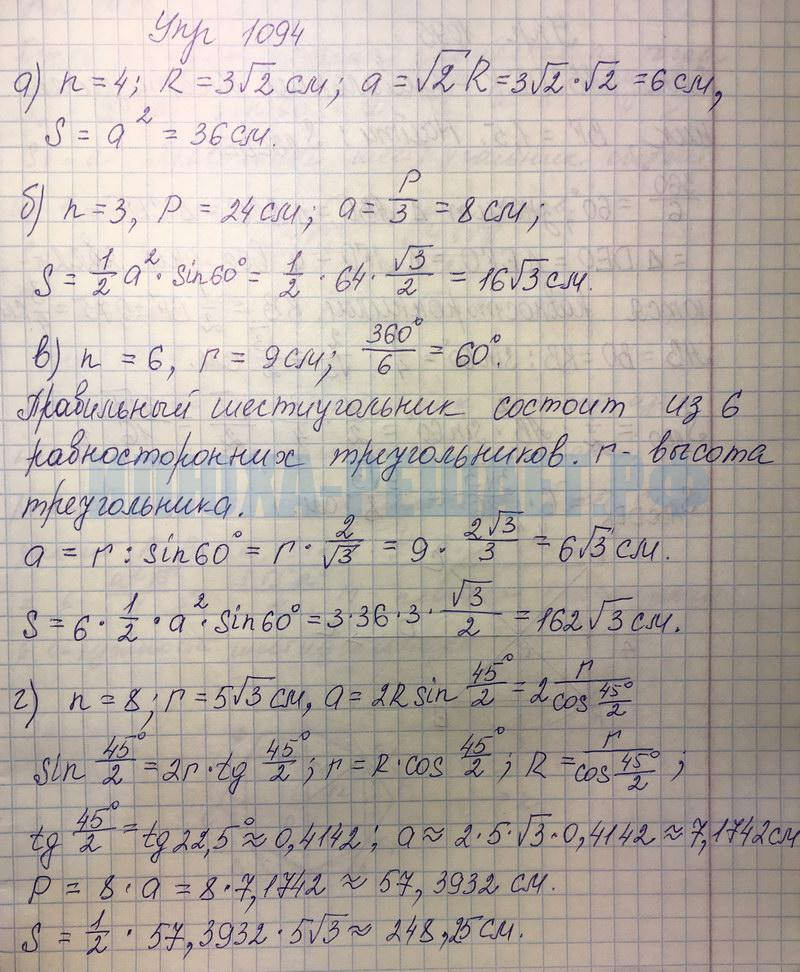 Упр 1094
а) n = 4; R = 3√2 см; a = √2 R = 3√2 · √2 = 6 см,
S = a² = 36 см.
б) n = 3, P = 24 см; a = P/3 = 8 см;
S = 1/2 a² · sin 60° = 1/2 · 64 · √3/2 = 16√3 см.
в) n = 6, r = 9 см; 360°/6 = 60°.
Правильный шестиугольник состоит из 6
равносторонних треугольников. r - высота
треугольника.
a = r : sin 60° = r · 2/√3 = 9 · 2√3/3 = 6√3 см.
S = 6 · 1/2 · a² · sin 60° = 3 · 36 · 3 · √3/2 = 162√3 см.
г) n = 8; r = 5√3 см, a = 2R sin 45°/2 = 2 r/cos 45°/2
sin 45°/2 = 2r · tg 45°/2; r = R · cos 45°/2; R = r/cos 45°/2;
tg 45°/2 = tg 22,5° ≈ 0,4142; a ≈ 2 · 5 · √3 · 0,4142 ≈ 7,1742 см
P = 8 · a = 8 · 7,1742 ≈ 57,3932 см.
S = 1/2 · 57,3932 · 5√3 ≈ 248,25 см.